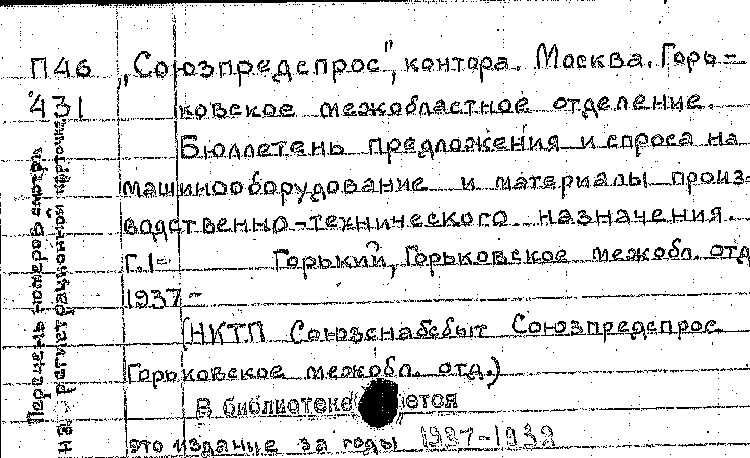 П46 „Союзпредспрос", контора. Москва. Горь-
431 ковское межобластное отделение.
Бюллетень предложения и спроса на
машинооборудование и материалы произ-
водственно-технического назначения.
Г.1- Горький, Горьковское межобл. отд
1937-
(НКТП Союзснабсбыт Союзпредспрос
Горьковское межобл. отд.)
В библиотеке ется
это издание за годы 1937-1938
Перечень номеров смотри
на регистрационной карточке